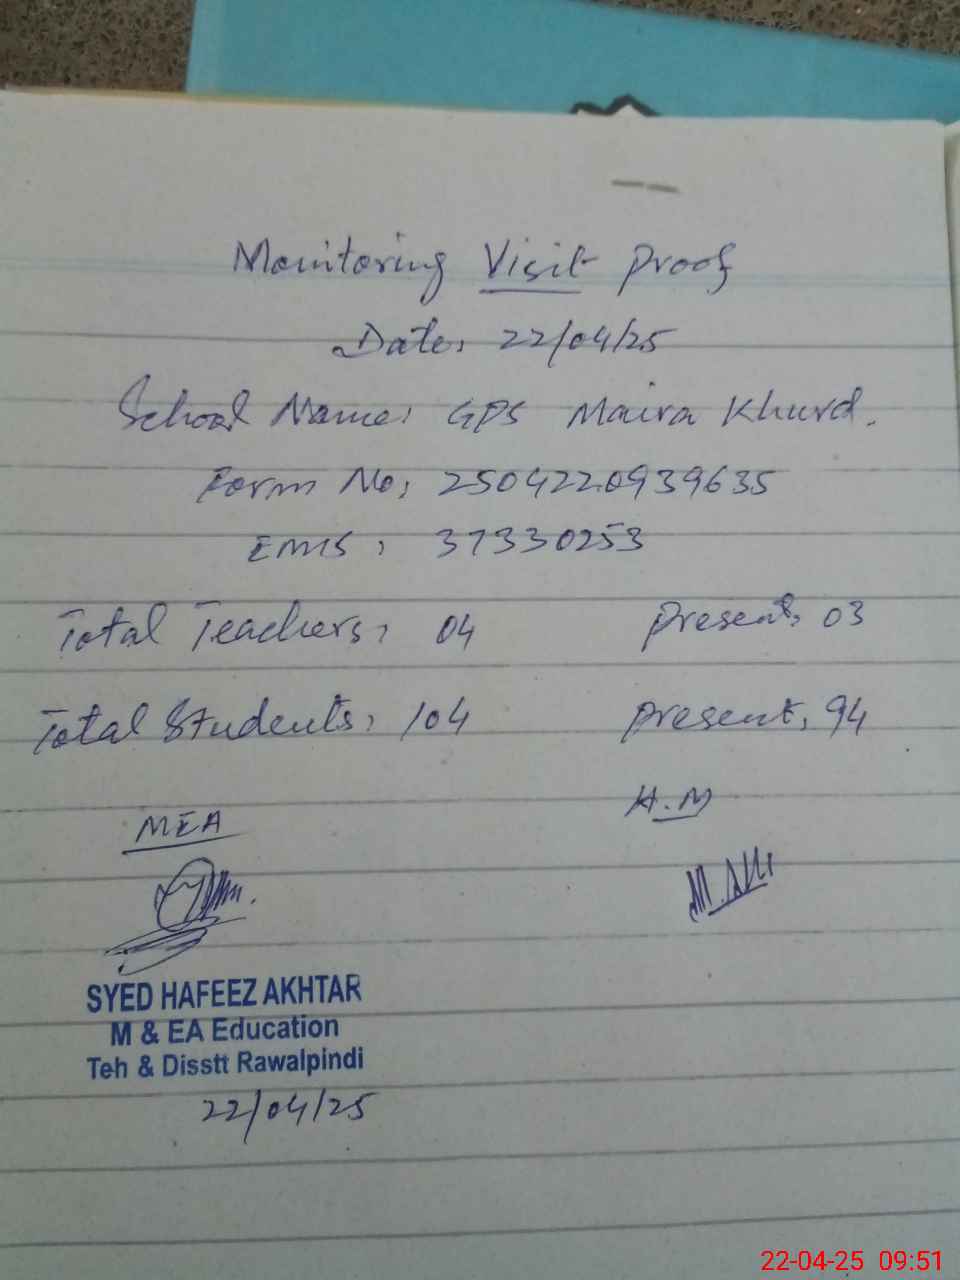 Monitoring Visit Proof
Date: 22/04/25
School Name: GPS Maira Khurd.
Form No: 2504220939635
EMIS: 37330253
Total Teachers: 04 Present: 03
Total Students: 104 Present: 94
MEA H.M
M. Ali
SYED HAFEEZ AKHTAR
M & EA Education
Teh & Disstt Rawalpindi
22/04/25
22-04-25 09:51